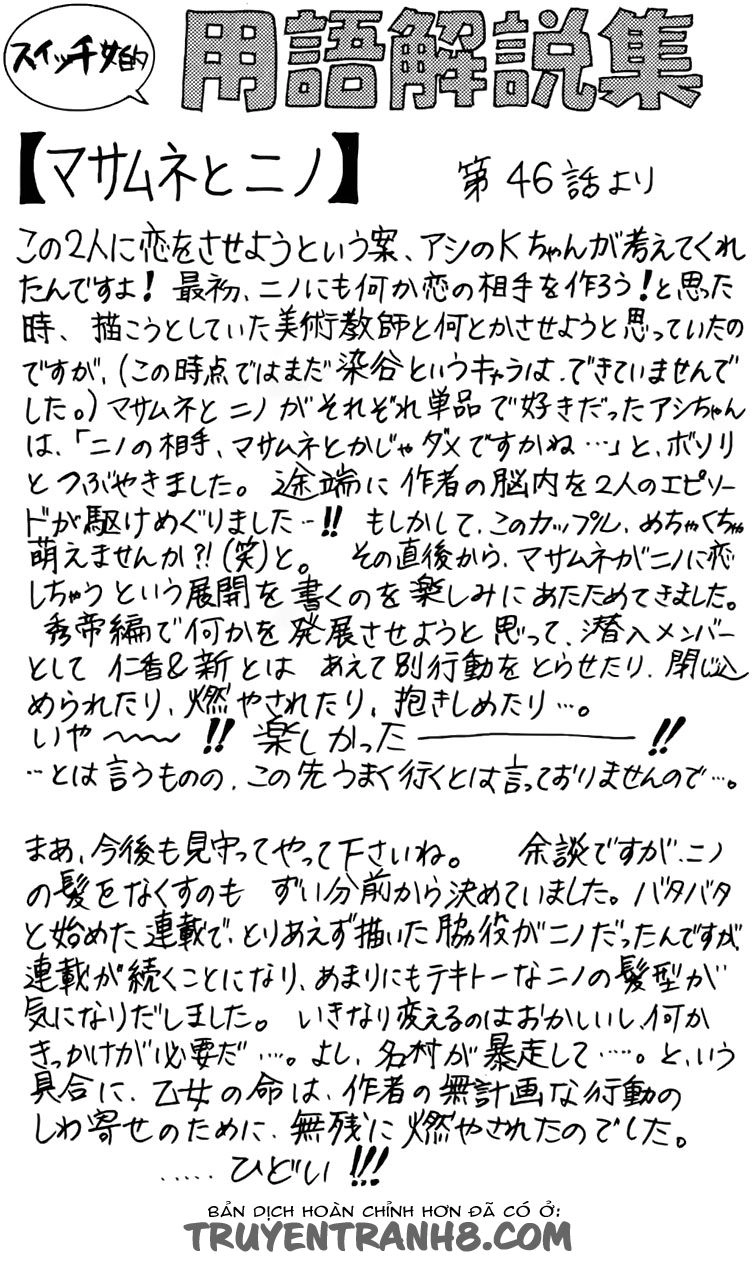 スイッチ女的
用語解説集
【マサムネとニノ】 第46話より
この2人に恋をさせようという案、アシのKちゃんが考えてくれ
たんですよ! 最初、ニノにも何か恋の相手を作ろう!と思った
時、描こうとしていた美術教師と何とかさせようと思っていたの
ですが、(この時点ではまだ染谷というキャラは、できていませんで
した。)マサムネとニノがそれぞれ単品で好きだったアシちゃん
は、「ニノの相手、マサムネとかじゃダメですかね…」と、ボソリ
とつぶやきました。途端に作者の脳内を2人のエピソー
ドが駆けめぐりました…!! もしかして、このカップル、めちゃくちゃ
萌えませんか?!(笑)と。 その直後から、マサムネがニノに恋
しちゃうという展開を書くのを楽しみにあたためてきました。
秀帝編で何かを発展させようと思って、潜入メンバー
として 仁香&新とは あえて別行動をとらせたり、閉じ込
められたり、燃やされたり、抱きしめたり…。
いや〜〜〜!! 楽しかった――――!!
…とは言うものの、この先うまく行くとは言っておりませんので…。
まあ、今後も見守ってやって下さいね。 余談ですが、ニノ
の髪をなくすのも ずい分前から決めていました。バタバタ
と始めた連載で、とりあえず描いた脇役がニノだったんですが、
連載が続くことになり、あまりにもテキトーなニノの髪型が
気になりだしました。いきなり変えるのはおかしいし、何か
きっかけが必要だ…。よし、名村が暴走して……。と、いう
具合に、乙女の命は、作者の無計画な行動の
しわ寄せのために、無残に燃やされたのでした。
……ひどい!!!
BẢN DỊCH HOÀN CHỈNH HƠN ĐÃ CÓ Ở:
TRUYENTRANH8.COM